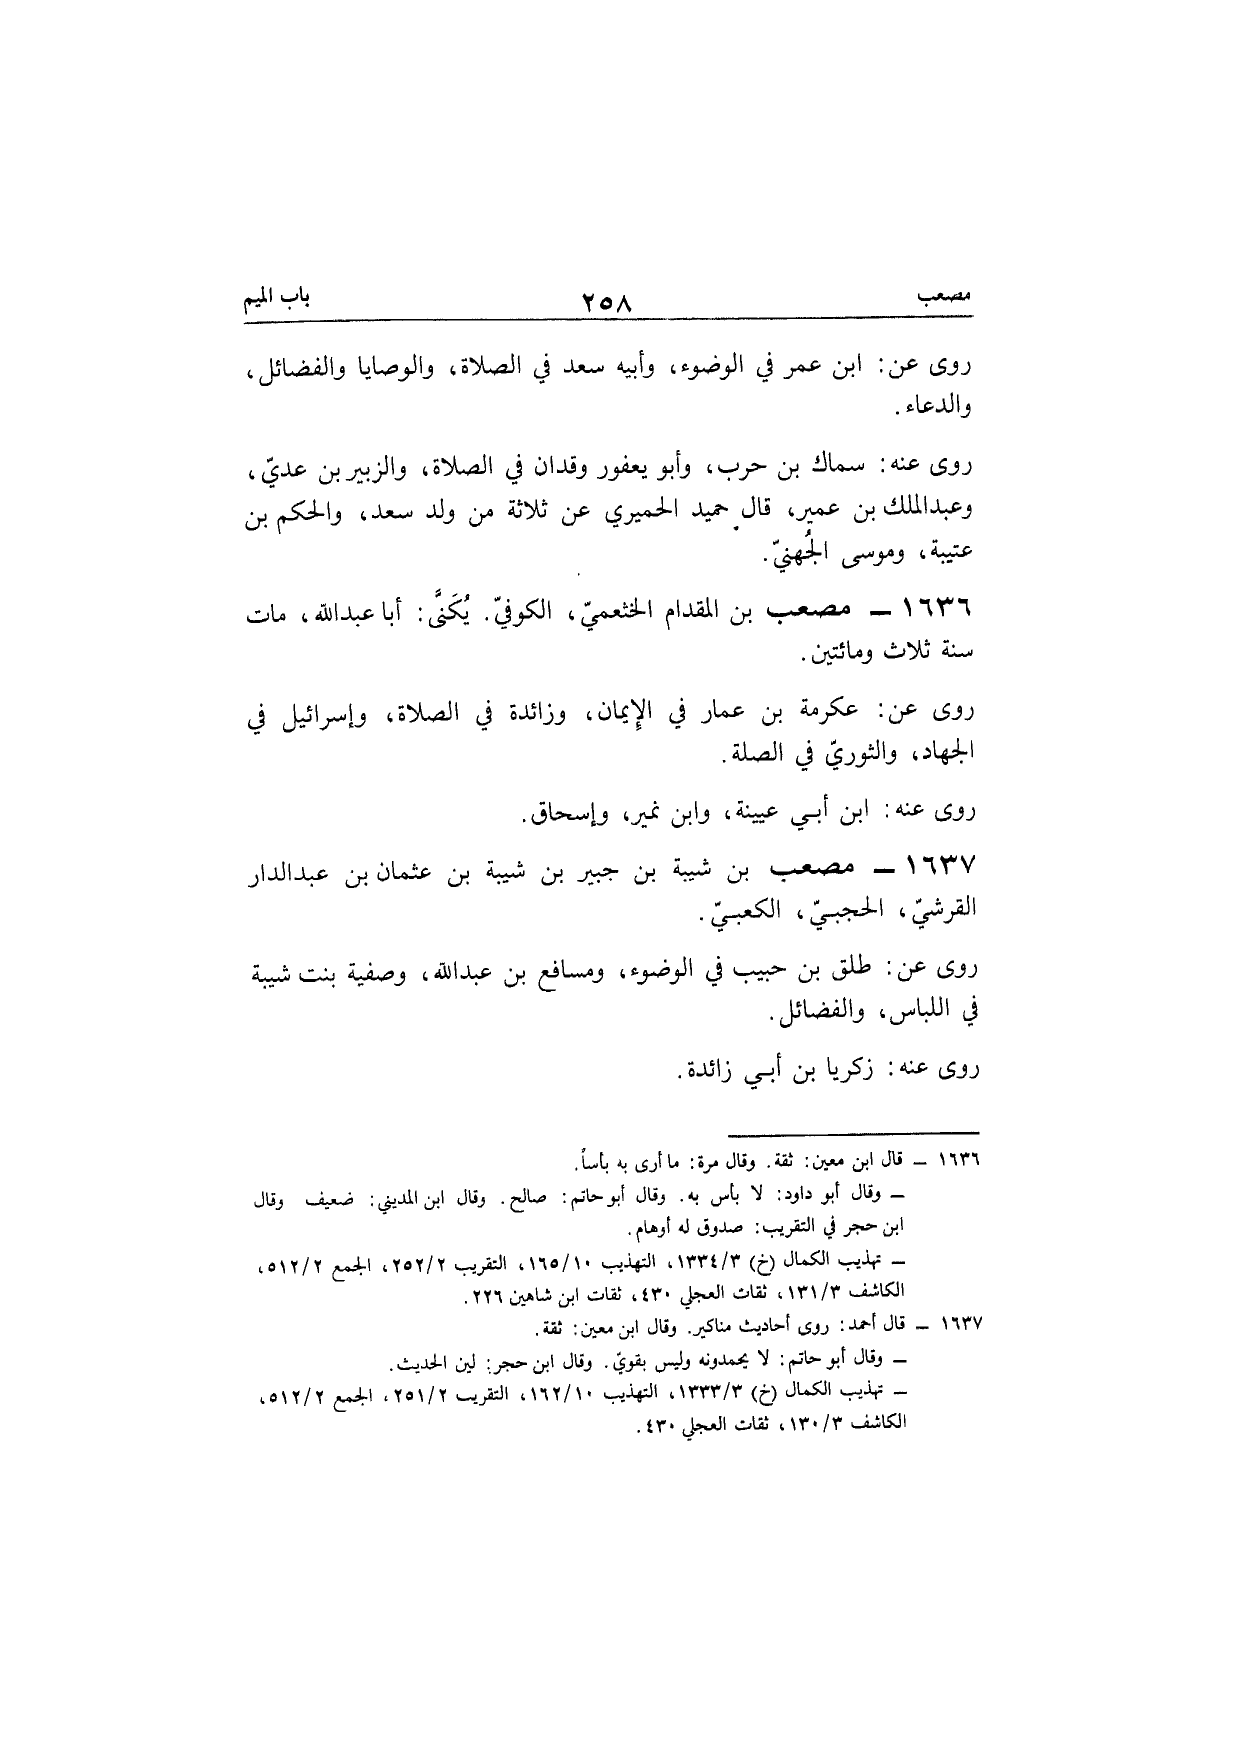 مصعب ٢٥٨ باب الميم
روى عن: ابن عمر في الوضوء، وأبيه سعد في الصلاة، والوصايا والفضائل،
والدعاء.
روى عنه: سماك بن حرب، وأبو يعفور وقدان في الصلاة، والزبير بن عديّ،
وعبدالملك بن عمير، قال حميد الحميري عن ثلاثة من ولد سعد، والحكم بن
عتيبة، وموسى الجُهنيّ.
١٦٣٦ ـ مصعب بن المقدام الخثعميّ، الكوفيّ. يُكَنَّى: أبا عبدالله، مات
سنة ثلاث ومائتين.
روى عن: عكرمة بن عمار في الإيمان، وزائدة في الصلاة، وإسرائيل في
الجهاد، والثوريّ في الصلة.
روى عنه: ابن أبي عيينة، وابن نمير، وإسحاق.
١٦٣٧ ـ مصعب بن شيبة بن جبير بن شيبة بن عثمان بن عبدالدار
القرشيّ، الحجبيّ، الكعبيّ.
روى عن: طلق بن حبيب في الوضوء، ومسافع بن عبدالله، وصفية بنت شيبة
في اللباس، والفضائل.
روى عنه: زكريا بن أبي زائدة.
١٦٣٦ ـ قال ابن معين: ثقة. وقال مرة: ما أرى به بأساً.
ـ وقال أبو داود: لا بأس به. وقال أبو حاتم: صالح. وقال ابن المديني: ضعيف وقال
ابن حجر في التقريب: صدوق له أوهام.
ـ تهذيب الكمال (خ) ١٣٣٤/٣، التهذيب ١٦٥/١٠، التقريب ٢٥٢/٢، الجمع ٥١٢/٢،
الكاشف ١٣١/٣، ثقات العجلي ٤٣٠، ثقات ابن شاهين ٢٢٦.
١٦٣٧ ـ قال أحمد: روى أحاديث مناكير. وقال ابن معين: ثقة.
ـ وقال أبو حاتم: لا يحمدونه وليس بقويّ. وقال ابن حجر: لين الحديث.
ـ تهذيب الكمال (خ) ١٣٣٣/٣، التهذيب ١٦٢/١٠، التقريب ٢٥١/٢، الجمع ٥١٢/٢،
الكاشف ١٣٠/٣، ثقات العجلي ٤٣٠.